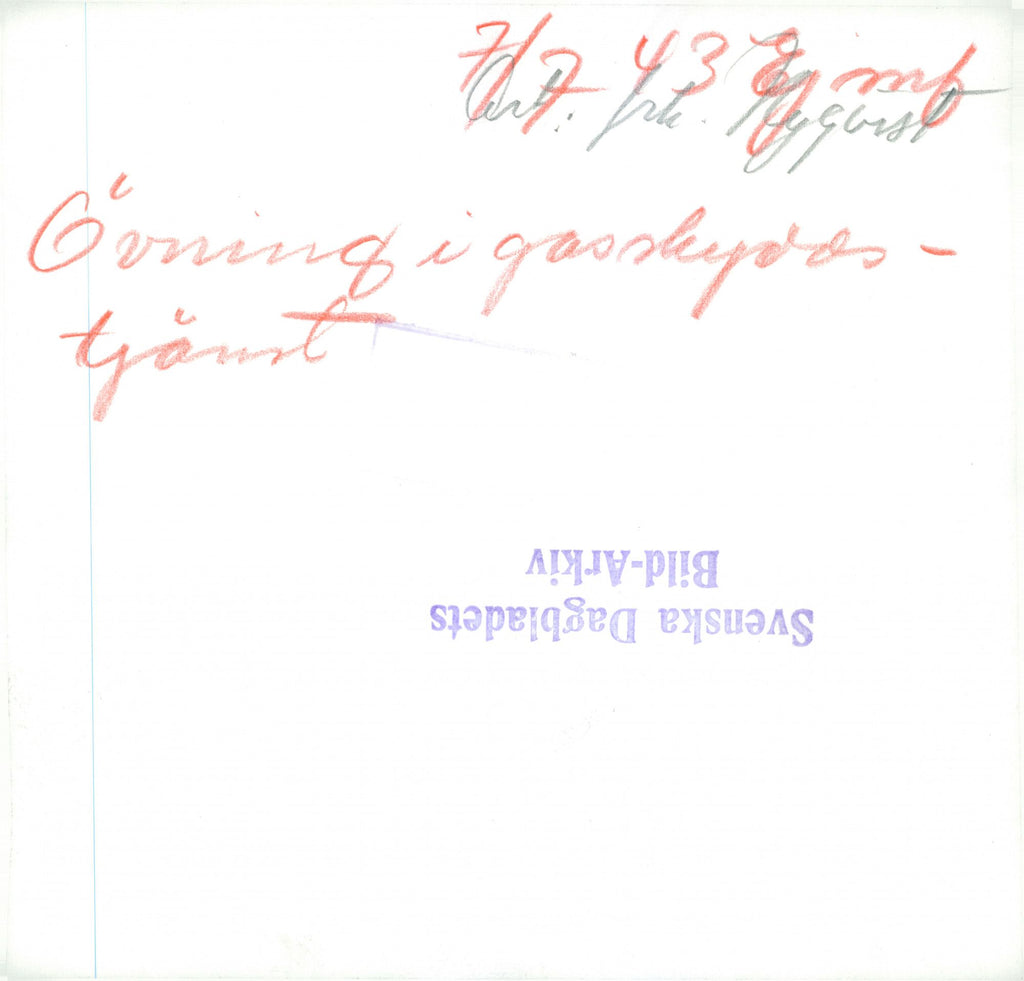 7/7 43 Eg mf
Art. frk. Nyqvist
Övning i gasskydds-
tjänst
Svenska Dagbladets
Bild-Arkiv